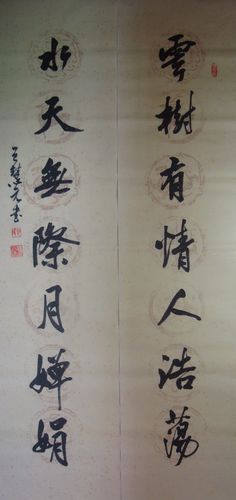 雲樹有情人浩蕩
水天無際月嬋娟